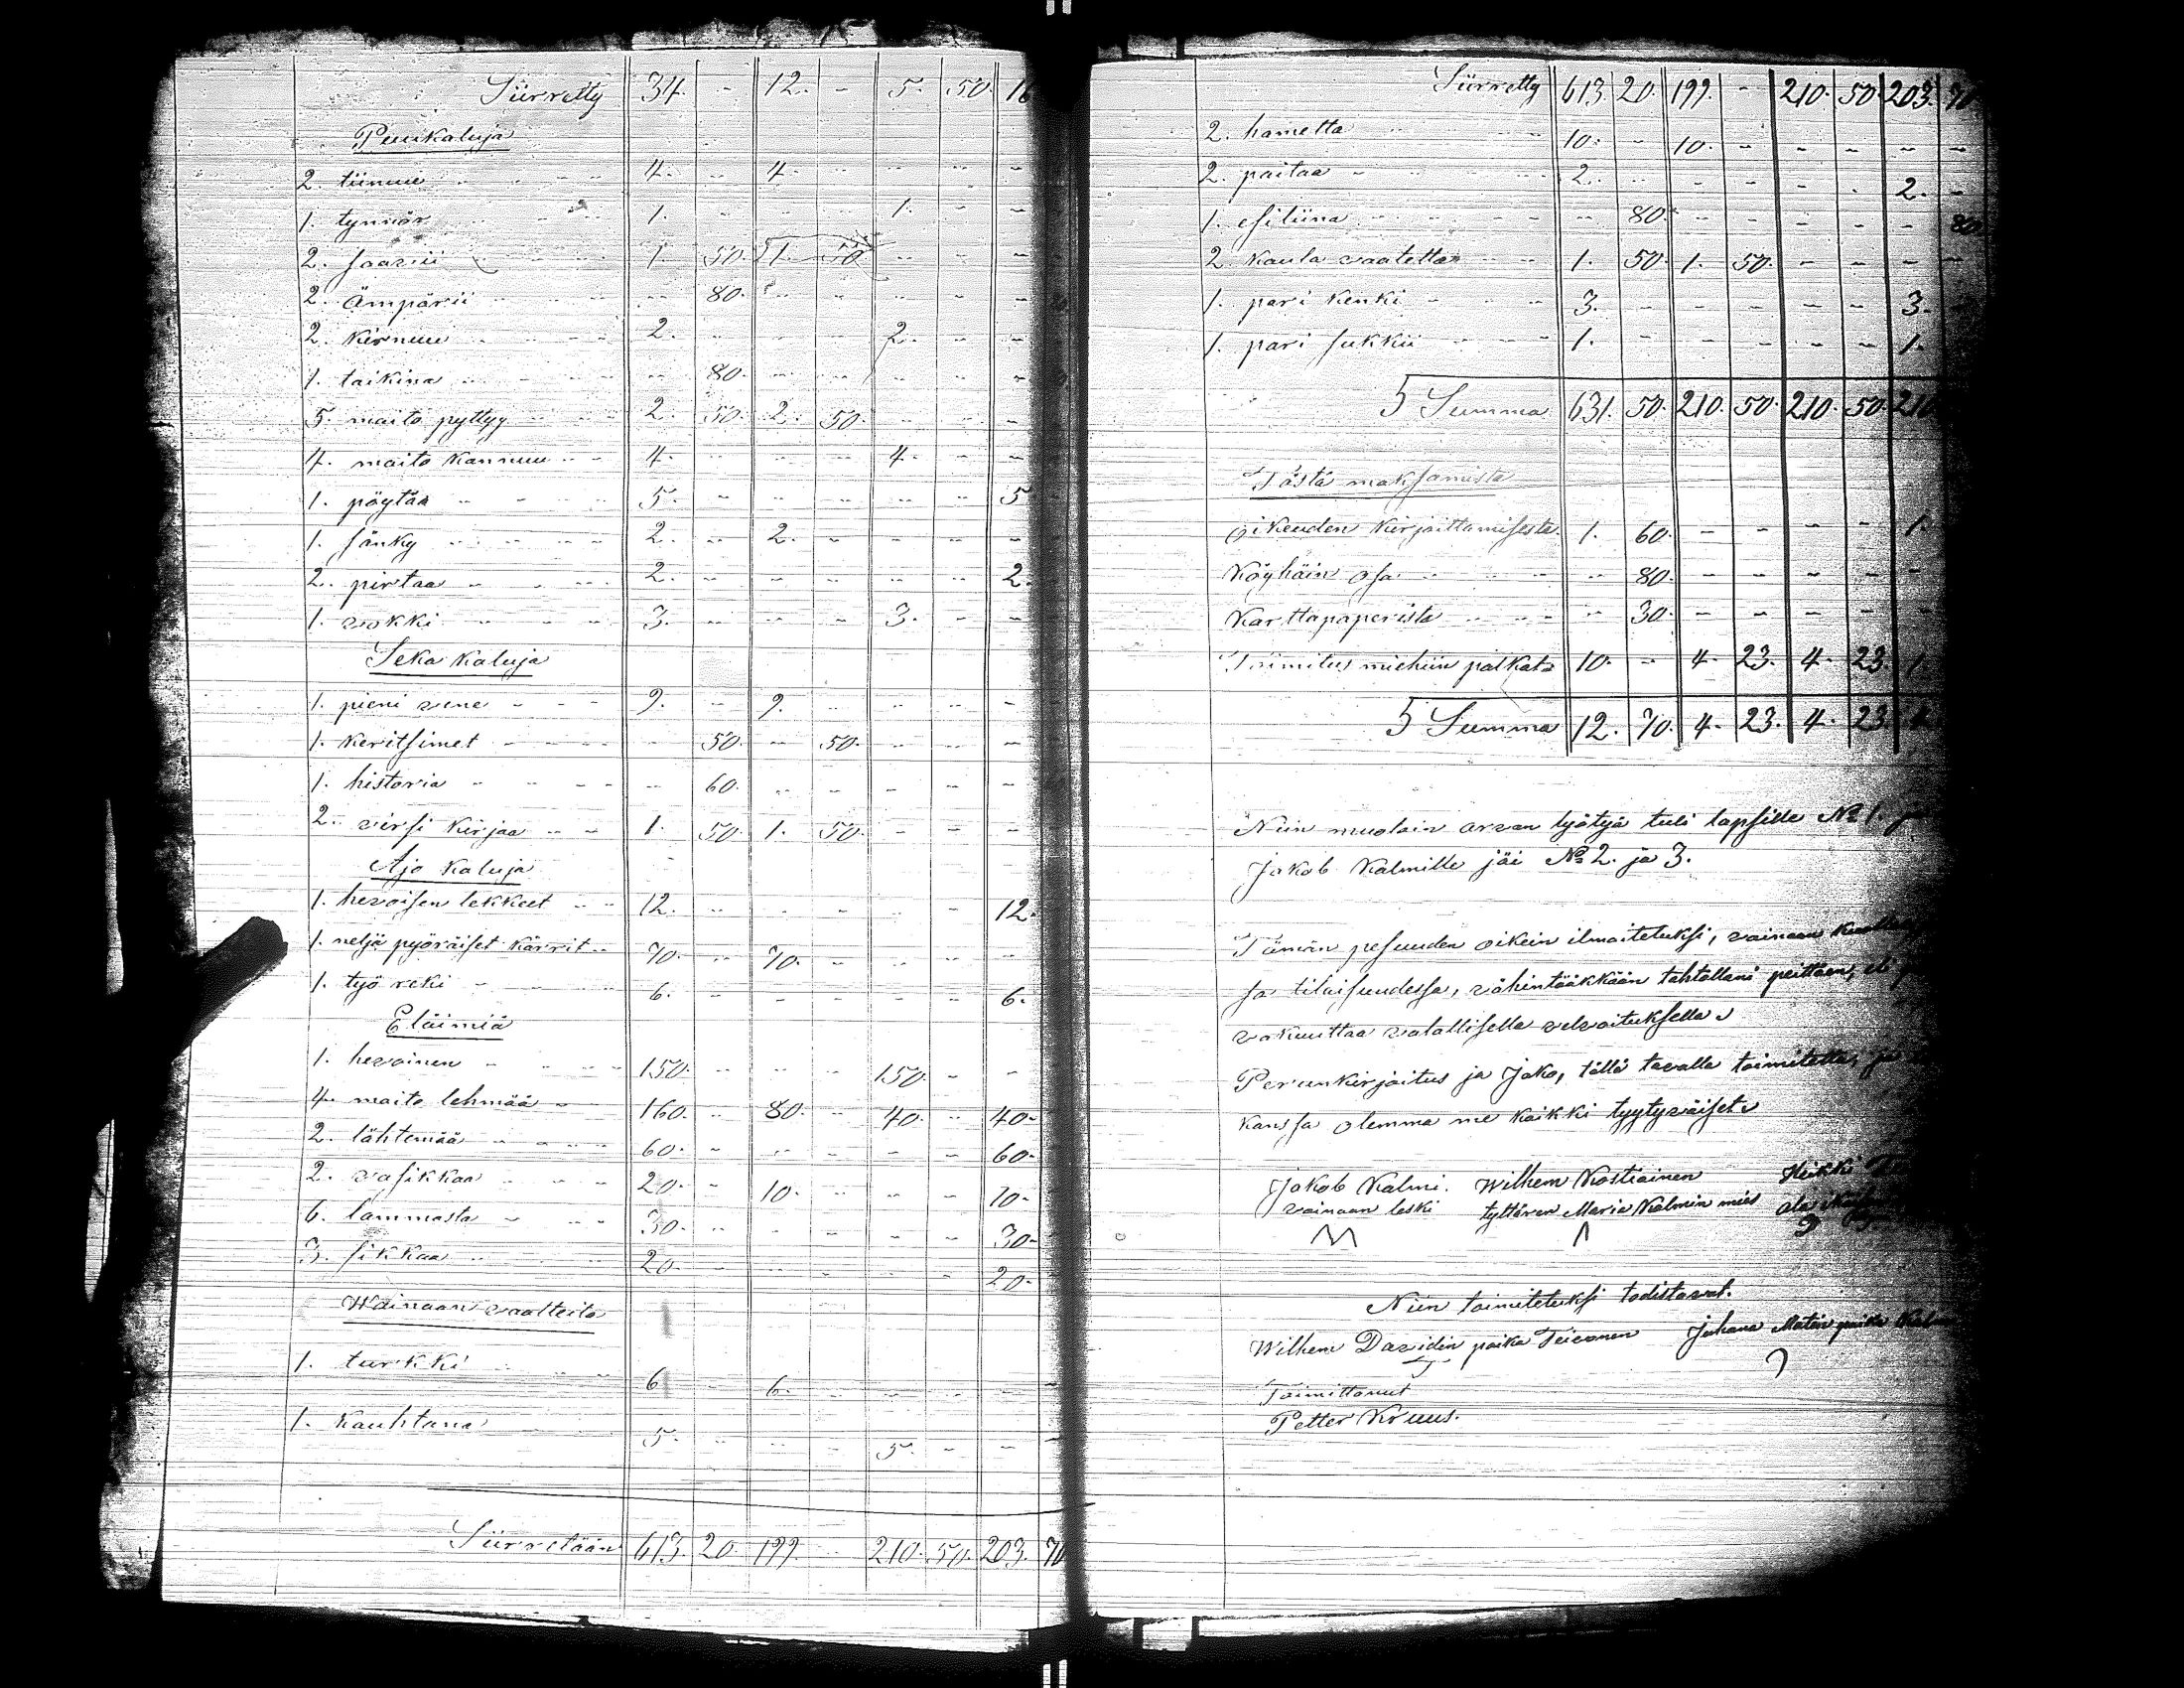 Siirretty 34. - 12. - 5. 50. 16
Puukaluja
2. tiinuu 4. - 4. - - - -
1. tynnör 1. - - - 1. - -
2. saavii 1. 50. 1. 50 - - -
2. ämpärii - 80. - - - - -
2. kirnuu 2. - - - 2. - -
1. taikina - 80. - - - - -
5. maito pyttyy 2. 50. 2. 50. - - -
4. maito kannuu 4. - - - 4. - -
1. pöytää 5. - - - - - 5.
1. sänky 2. - 2. - - - -
2. pirtaa 2. - - - - - 2.
1. vokki 3. - - - 3. - -
Seka kaluja
1. pieni vene 9. - 9. - - - -
1. keritsimet - 50. - 50. - - -
1. historia - 60. - - - - -
2. virsi kirjaa 1. 50. 1. 50. - - -
Ajo kaluja
1. hevoisen lekkeet 12. - - - - - 12.
1. neljä pyöräiset kärrit 70. - 70. - - - -
1. työ reki 6. - - - - - 6.
Eläimiä
1. hevoinen 150. - - - 150. - -
4. maito lehmää 160. - 80. - 40. - 40.
2. lähtemää 60. - - - - - 60.
2. vasikkaa 20. - 10. - - - 10.
6. lammasta 30. - - - - - 30.
3. sikkaa 20. - - - - - 20.
Wainaan vaatteita
1. turkki 6. - 6. - - - -
1. kauhtana 5. - - - 5. - -
Siirretään 613. 20. 199. - 210. 50. 203. 70
Siirretty 613. 20. 199. - 210. 50. 203. 70
2. hametta 10. - 10. - - - - -
2. paitaa 2. - - - - - 2. -
1. esiliina - 80. - - - - - 80
2 kaula vaatettaa 1. 50. 1. 50. - - - -
1. pari kenki 3. - - - - - 3. -
1. pari sukkii 1. - - - - - 1.
S Summa 631. 50. 210. 50. 210. 50. 210
Tästä maksamista
Oikeuden kirjoittamisesta. 1. 60. - - - - 1.
Köyhäin osa - 80. - - - - -
Karttapaperista - 30. - - - - -
Toimitus miehiin palkat 10. - 4. 23. 4. 23. 1.
S Summa 12. 70. 4. 23. 4. 23 4
Niin muotoin arvan lyötyä tuli lapsille No 1. ja
Jakob Kalmille jäi No 2. ja 3.
Tämän pesuuden oikein ilmoitetuksi, vainaan
sa tilaisuudessa, vähintääkkään tahtollani peittäen, eli
vakuuttaa valallisella velvoituksella
Perunkirjoitus ja Jako, tällä tavalla toimitettu, ja
kanssa olemma me kaikki tyytyväiset
Jakob Kalmi. Wilhem Kostiainen Heikki
vainaan leski tyttären Maria Kalmin mies
Niin toimitetuksi todistavat.
Wilhem Davidin poika Teivonen Juhana Matin poika
Toimittanut
Petter Kruus.